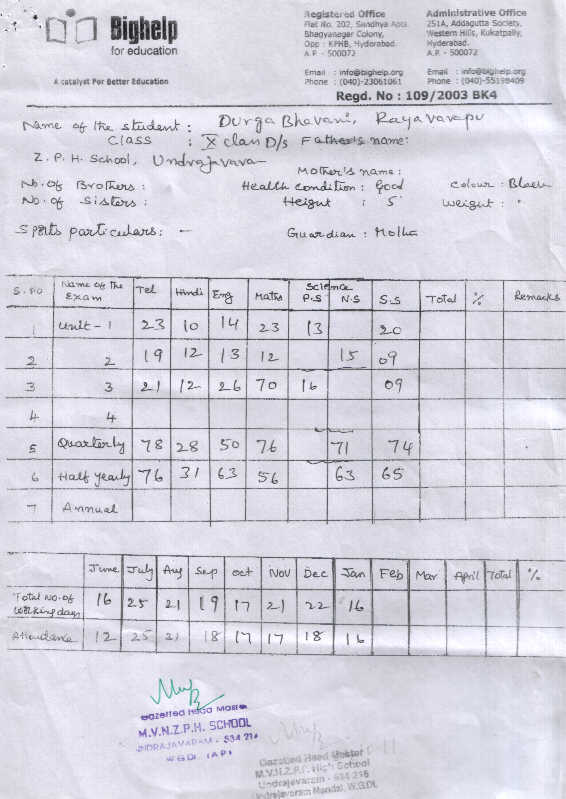 Bighelp
for education
A catalyst For Better Education
Registered Office
Flat No. 202, Sandhya Apts.
Bhagyanagar Colony,
Opp : KPHB, Hyderabad.
A.P. - 500072
Email : info@bighelp.org
Phone : (040)-23061061
Administrative Office
251A, Addagutta Society,
Western Hills, Kukatpally,
Hyderabad.
A.P. - 500072
Email : info@bighelp.org
Phone : (040)-55198409
Regd. No : 109/2003 BK4
Name of the student : Durga Bhavani, Rayavarapu
Class : X class D/s Father's name:
Z. P. H. School, Undrajavara
Mother's name :
No. of Brothers : Health condition : Good Colour : Black
No. of Sisters : Height : 5' Weight :
Sports particulars: - Guardian : Mother
S.no Name of the Exam Tel Hindi Eng Maths Science P.S N.S S.S Total % Remarks
1 Unit - 1 23 10 14 23 13 20
2 2 19 12 13 12 15 09
3 3 21 12 26 70 16 09
4 4
5 Quarterly 78 28 50 76 71 74
6 Half yearly 76 31 63 56 63 65
7 Annual
June July Aug Sep Oct Nov Dec Jan Feb Mar April Total %
Total No. of working days 16 25 21 19 17 21 22 16
Attendance 12 25 21 18 17 17 18 16
Gazetted Head Master
M.V.N.Z.P.H. SCHOOL
UNDRAJAVARAM - 534 216
W.GDT. (AP)
Gazetted Head Master
M.V.N.Z.P. High School
Undrajavaram - 534 216
Undrajavaram Mandal, W.G.Dt.